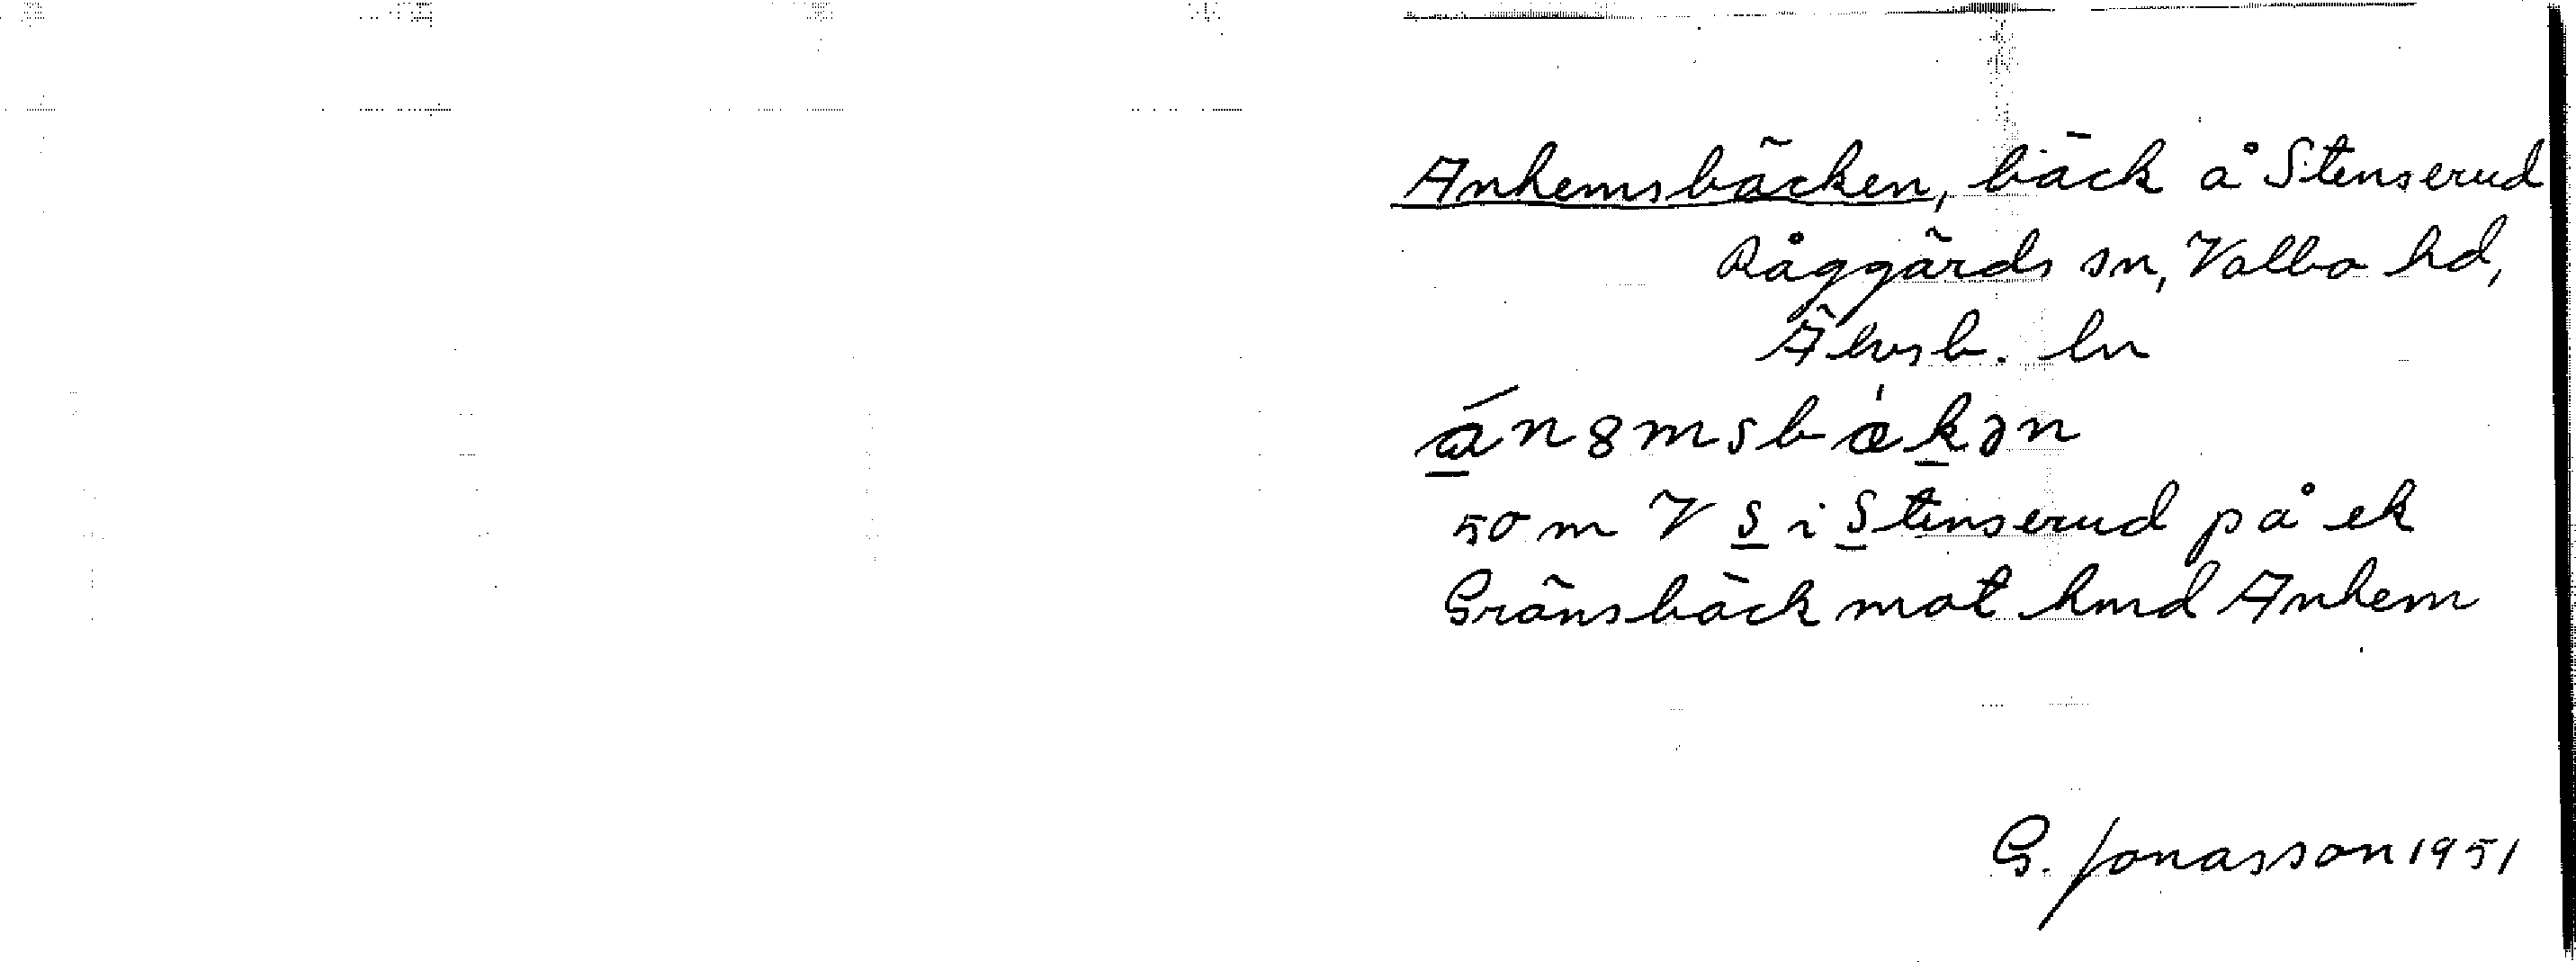 Anhemsbäcken, bäck å Stenserud
Råggärds sn, Valbo hd,
Älvsb. ln
á̲n8msbækən
50 m V S i Stenserud på ek
Gränsbäck mot hmd Anhem
G. Jonasson 1951